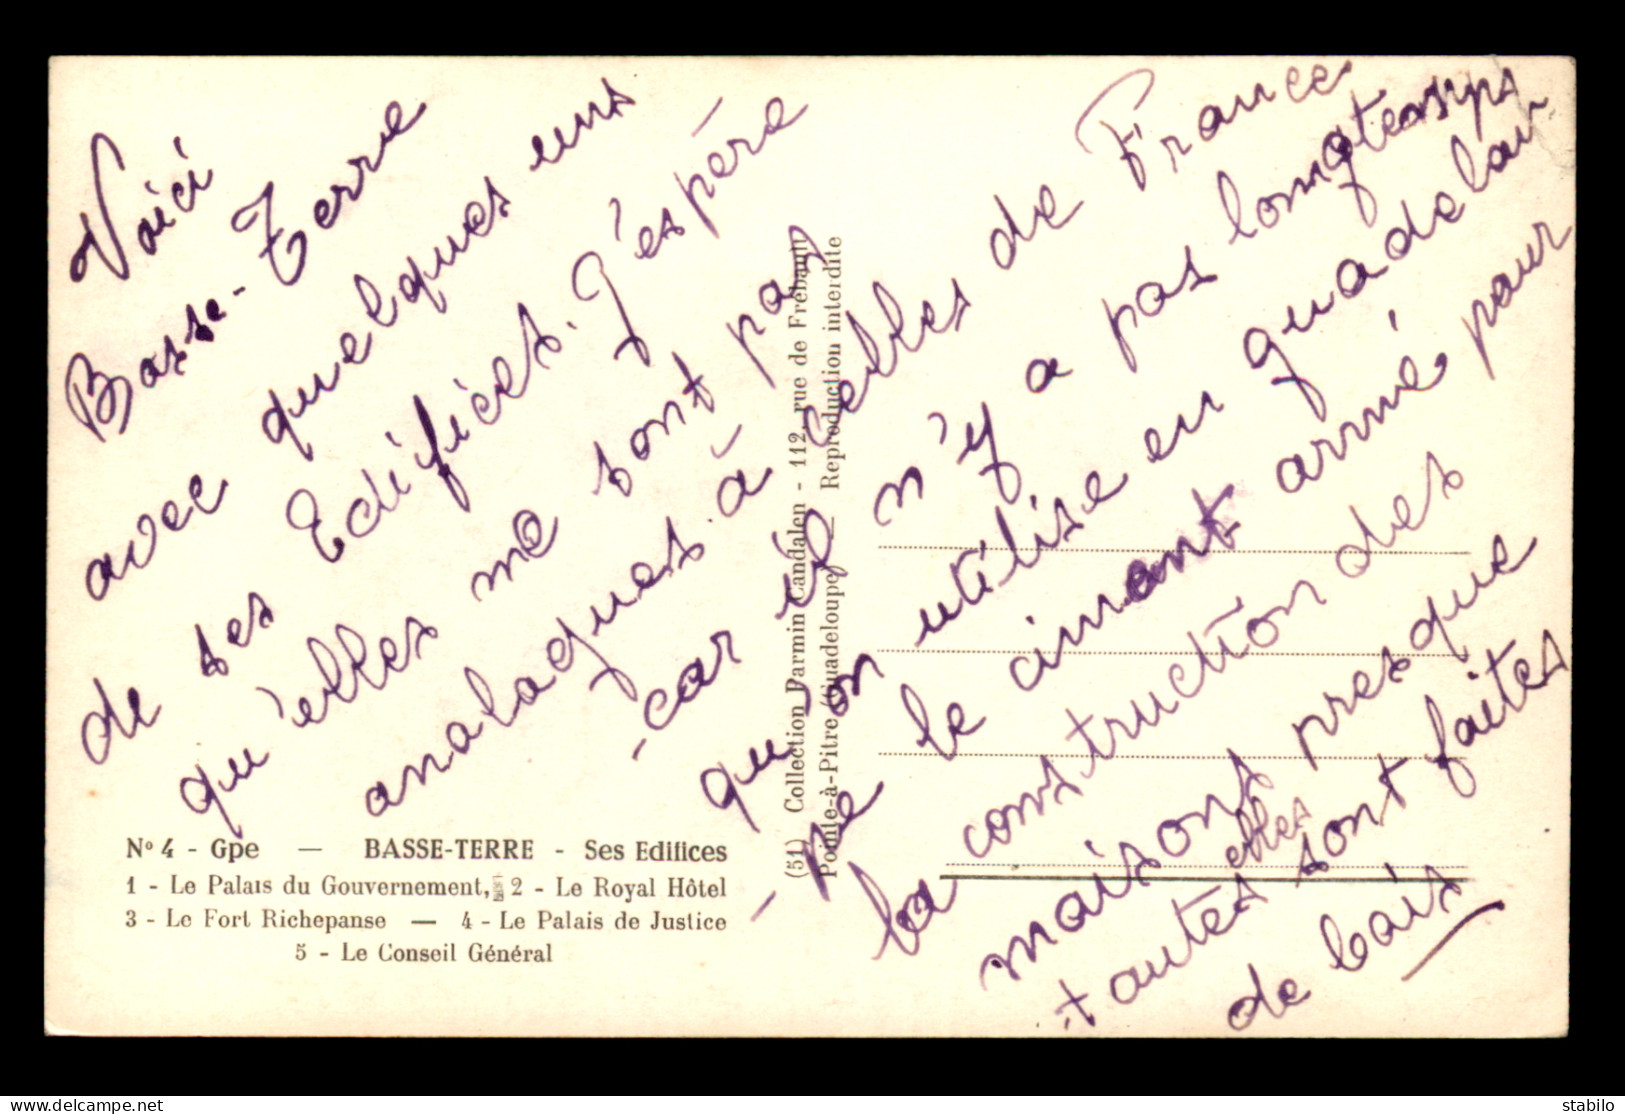 Voici
Basse-Terre
avec quelques uns
de ses Edifices. J'espère
qu'elles me sont pas
analogues à celles de France
-car il n'y a pas longtemps
qu'on utilise en guadelou-
-pe le ciment armé pour
la construction des
maisons presque
toutes elles sont faites
de bois
No 4 - Gpe — BASSE-TERRE - Ses Edifices
1 - Le Palais du Gouvernement, 2 - Le Royal Hôtel
3 - Le Fort Richepanse — 4 - Le Palais de Justice
5 - Le Conseil Général
(51) Collection Parmin Candalen - 112, rue de Frébault
Pointe-à-Pitre (Guadeloupe) _ Reproduction interdite
delcampe.net
stabilo